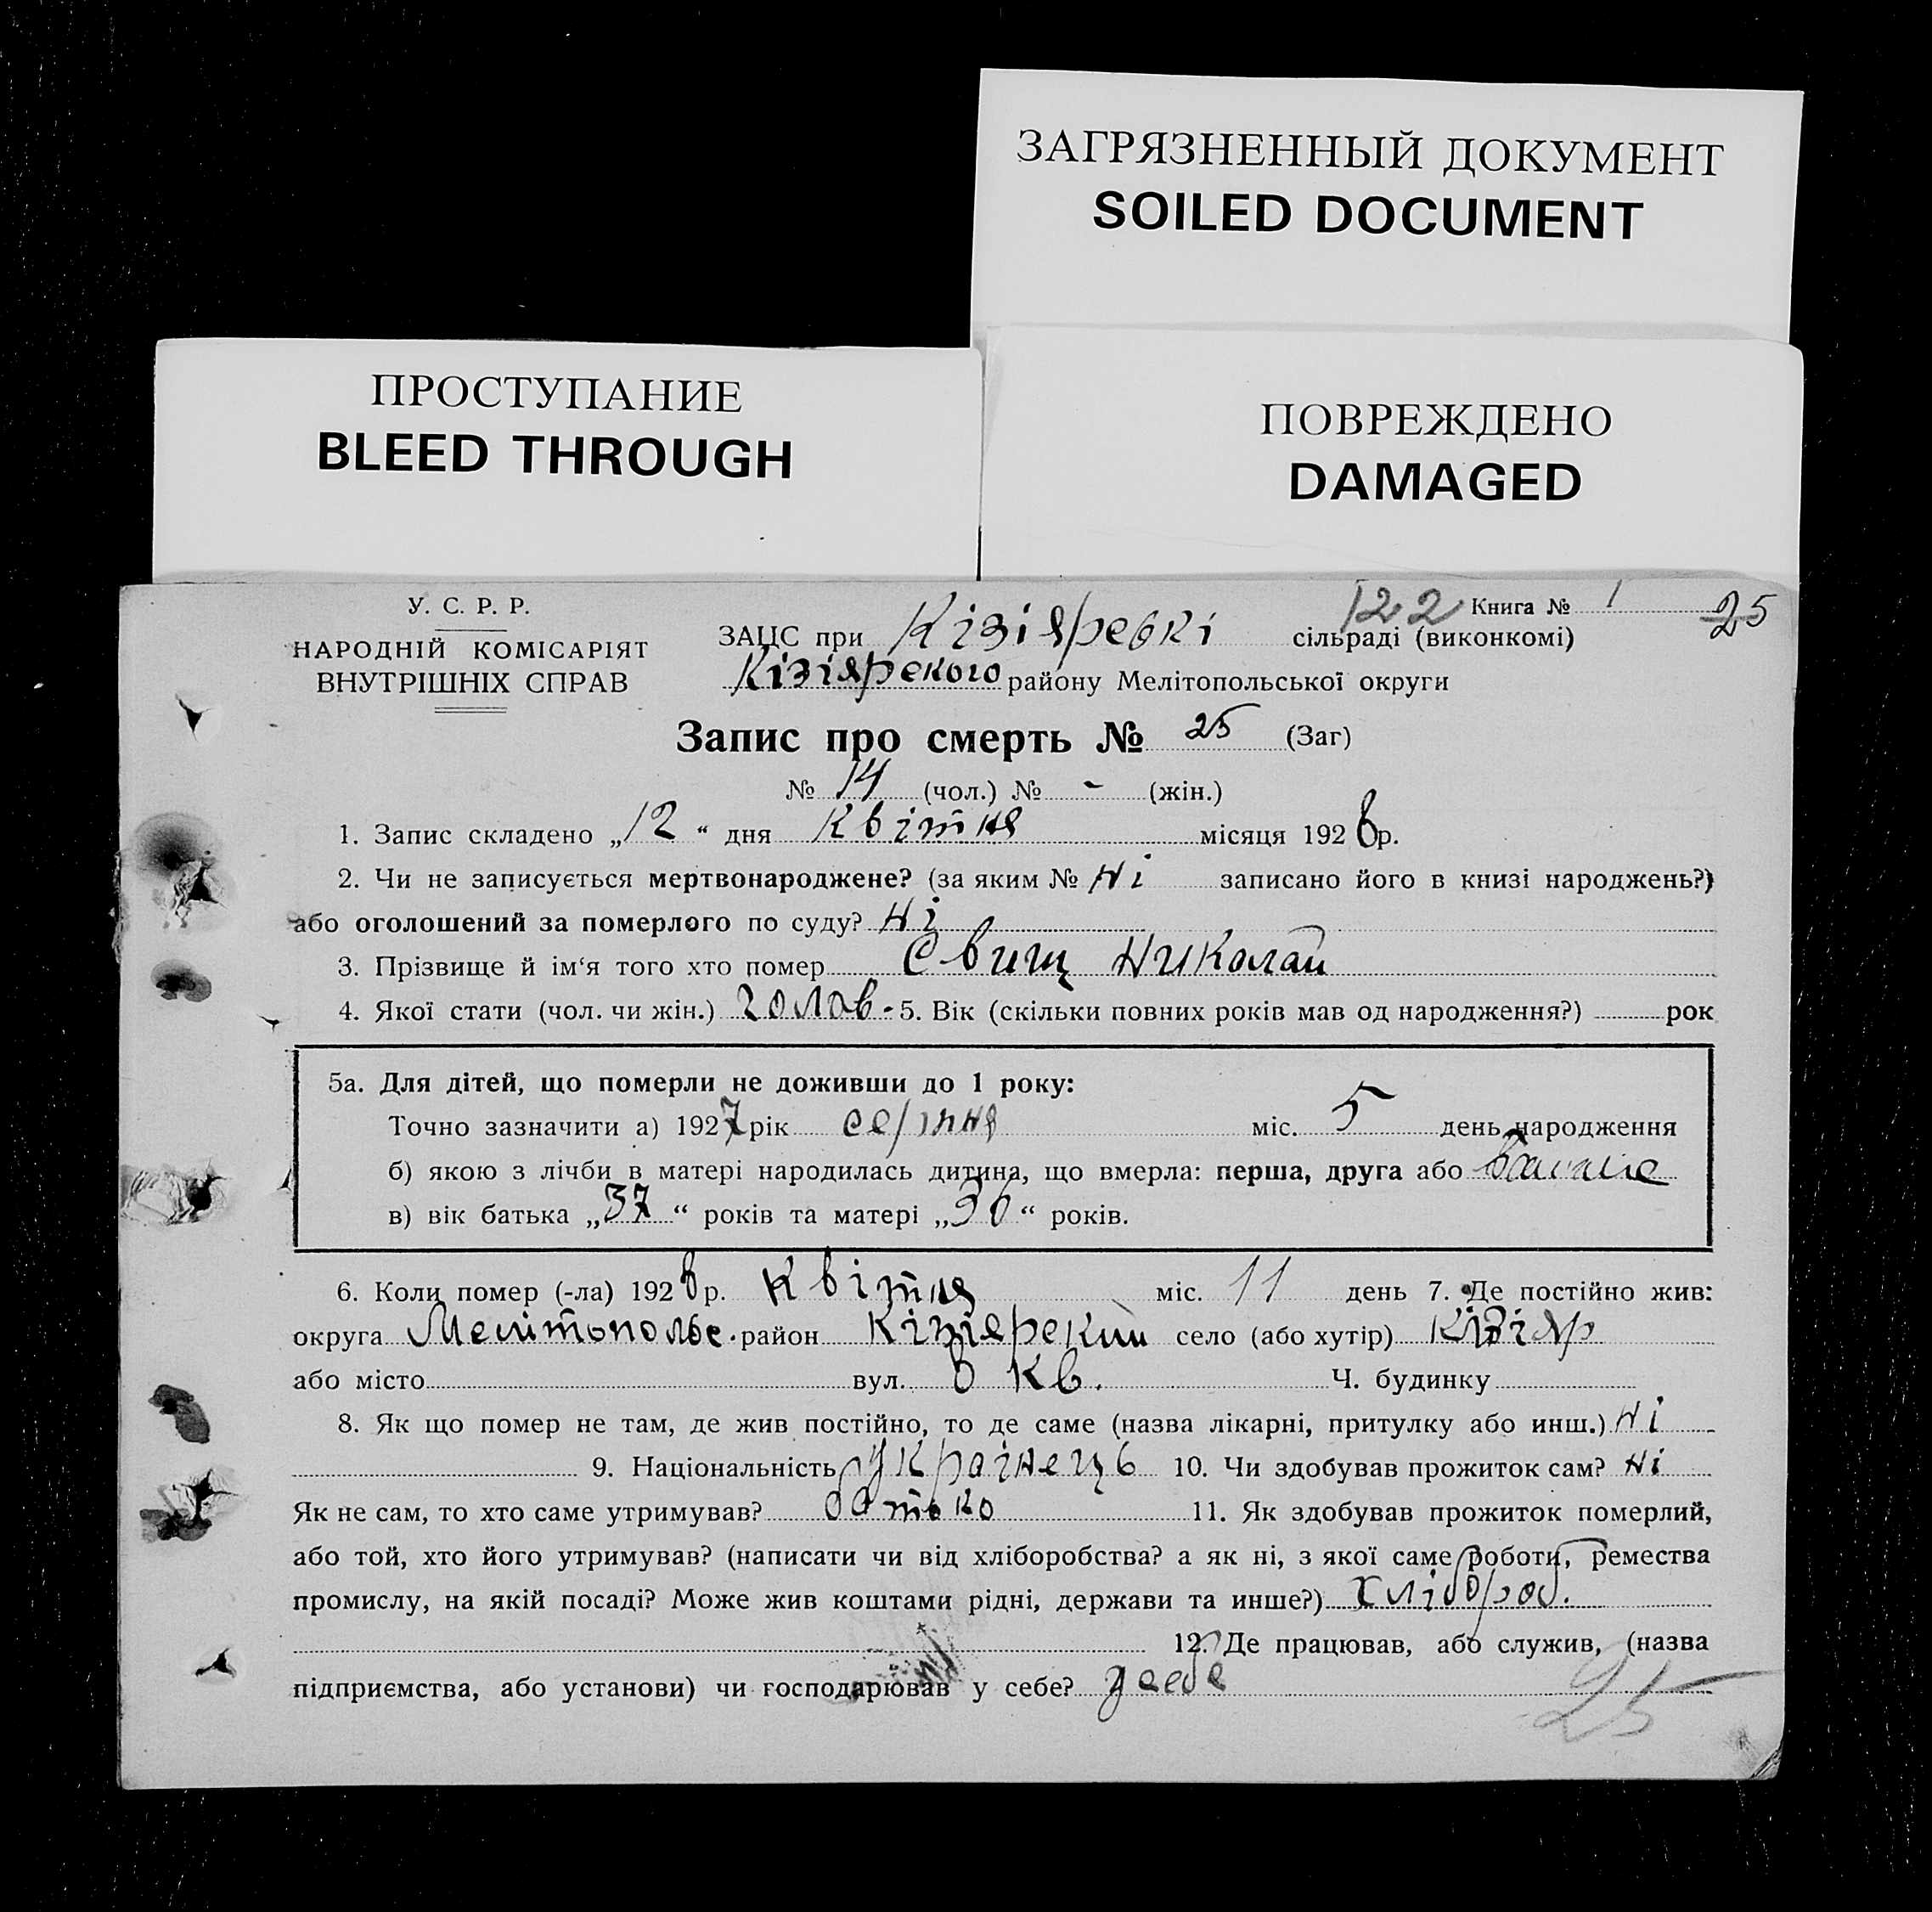 ЗАГРЯЗНЕННЫЙ ДОКУМЕНТ
SOILED DOCUMENT
ПРОСТУПАНИЕ
BLEED THROUGH
ПОВРЕЖДЕНО
DAMAGED
У. С. Р. Р.
НАРОДНІЙ КОМІСАРІЯТ
ВНУТРІШНІХ СПРАВ
122 Книга № 1 25
ЗАЦС при Кізіяревкі сільраді (виконкомі)
Кізіярского району Мелітопольської округи
Запис про смерть № 25 (Заг)
№ 14 (чол.) № - (жін.)
1. Запис складено „12“ дня Квітня місяця 1928 р.
2. Чи не записується мертвонароджене? (за яким № Ні записано його в книзі народжень?)
або оголошений за померлого по суду? Ні
3. Прізвище й ім‘я того хто помер Свищ Николай
4. Якої стати (чол. чи жін.) голов. 5. Вік (скільки повних років мав од народження?) рок
5а. Для дітей, що померли не доживши до 1 року:
Точно зазначити а) 1927 рік серпня міс. 5 день народження
б) якою з лічби в матері народилась дитина, що вмерла: перша, друга або
в) вік батька „37“ років та матері „36“ років.
6. Коли помер (-ла) 1928 р. Квітня міс. 11 день 7. Де постійно жив:
округа Мелітопольс. район Кізіярский село (або хутір) Кізіяр
або місто вул. 8 кв. Ч. будинку
8. Як що помер не там, де жив постійно, то де саме (назва лікарні, притулку або инш.) Ні
9. Національність Українець 10. Чи здобував прожиток сам? ні
Як не сам, то хто саме утримував? батько 11. Як здобував прожиток померлий,
або той, хто його утримував? (написати чи від хліборобства? а як ні, з якої саме роботи, ремества
промислу, на якій посаді? Може жив коштами рідні, держави та инше?) хлібороб.
12. Де працював, або служив, (назва
підприємства, або установи) чи господарював у себе? усебе
25